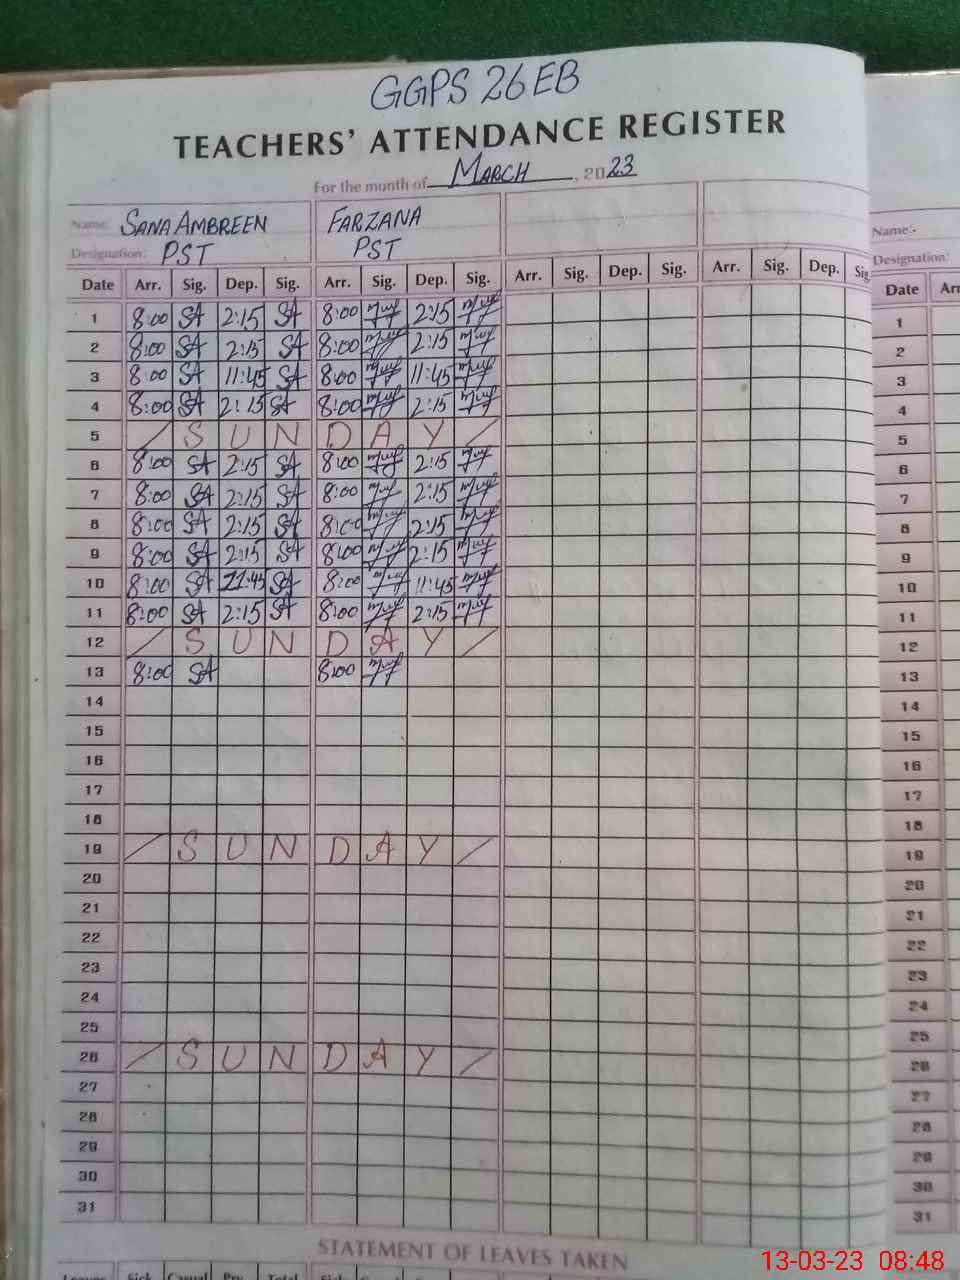 GGPS 26 EB
TEACHERS' ATTENDANCE REGISTER
For the month of March, 2023
Name: SANA AMBREEN FARZANA
Designation: PST PST
Name:-
Designation:
Date Arr. Sig. Dep. Sig. Arr. Sig. Dep. Sig. Arr. Sig. Dep. Sig. Arr. Sig. Dep. Sig. Date
1 8:00 SA 2:15 SA 8:00 2:15 1
2 8:00 SA 2:15 SA 8:00 2:15 2
3 8:00 SA 11:45 SA 8:00 11:45 3
4 8:00 SA 2:15 SA 8:00 2:15 4
5 / S U N D A Y / 5
6 8:00 SA 2:15 SA 8:00 2:15 6
7 8:00 SA 2:15 SA 8:00 2:15 7
8 8:00 SA 2:15 SA 8:00 2:15 8
9 8:00 SA 2:15 SA 8:00 2:15 9
10 8:00 SA 11:45 SA 8:00 11:45 10
11 8:00 SA 2:15 SA 8:00 2:15 11
12 / S U N D A Y / 12
13 8:00 SA 8:00 13
14 14
15 15
16 16
17 17
18 18
19 / S U N D A Y / 19
20 20
21 21
22 22
23 23
24 24
25 25
26 / S U N D A Y / 26
27 27
28 28
29 29
30 30
31 31
STATEMENT OF LEAVES TAKEN
Leaves Sick Casual Prv. Total
13-03-23 08:48